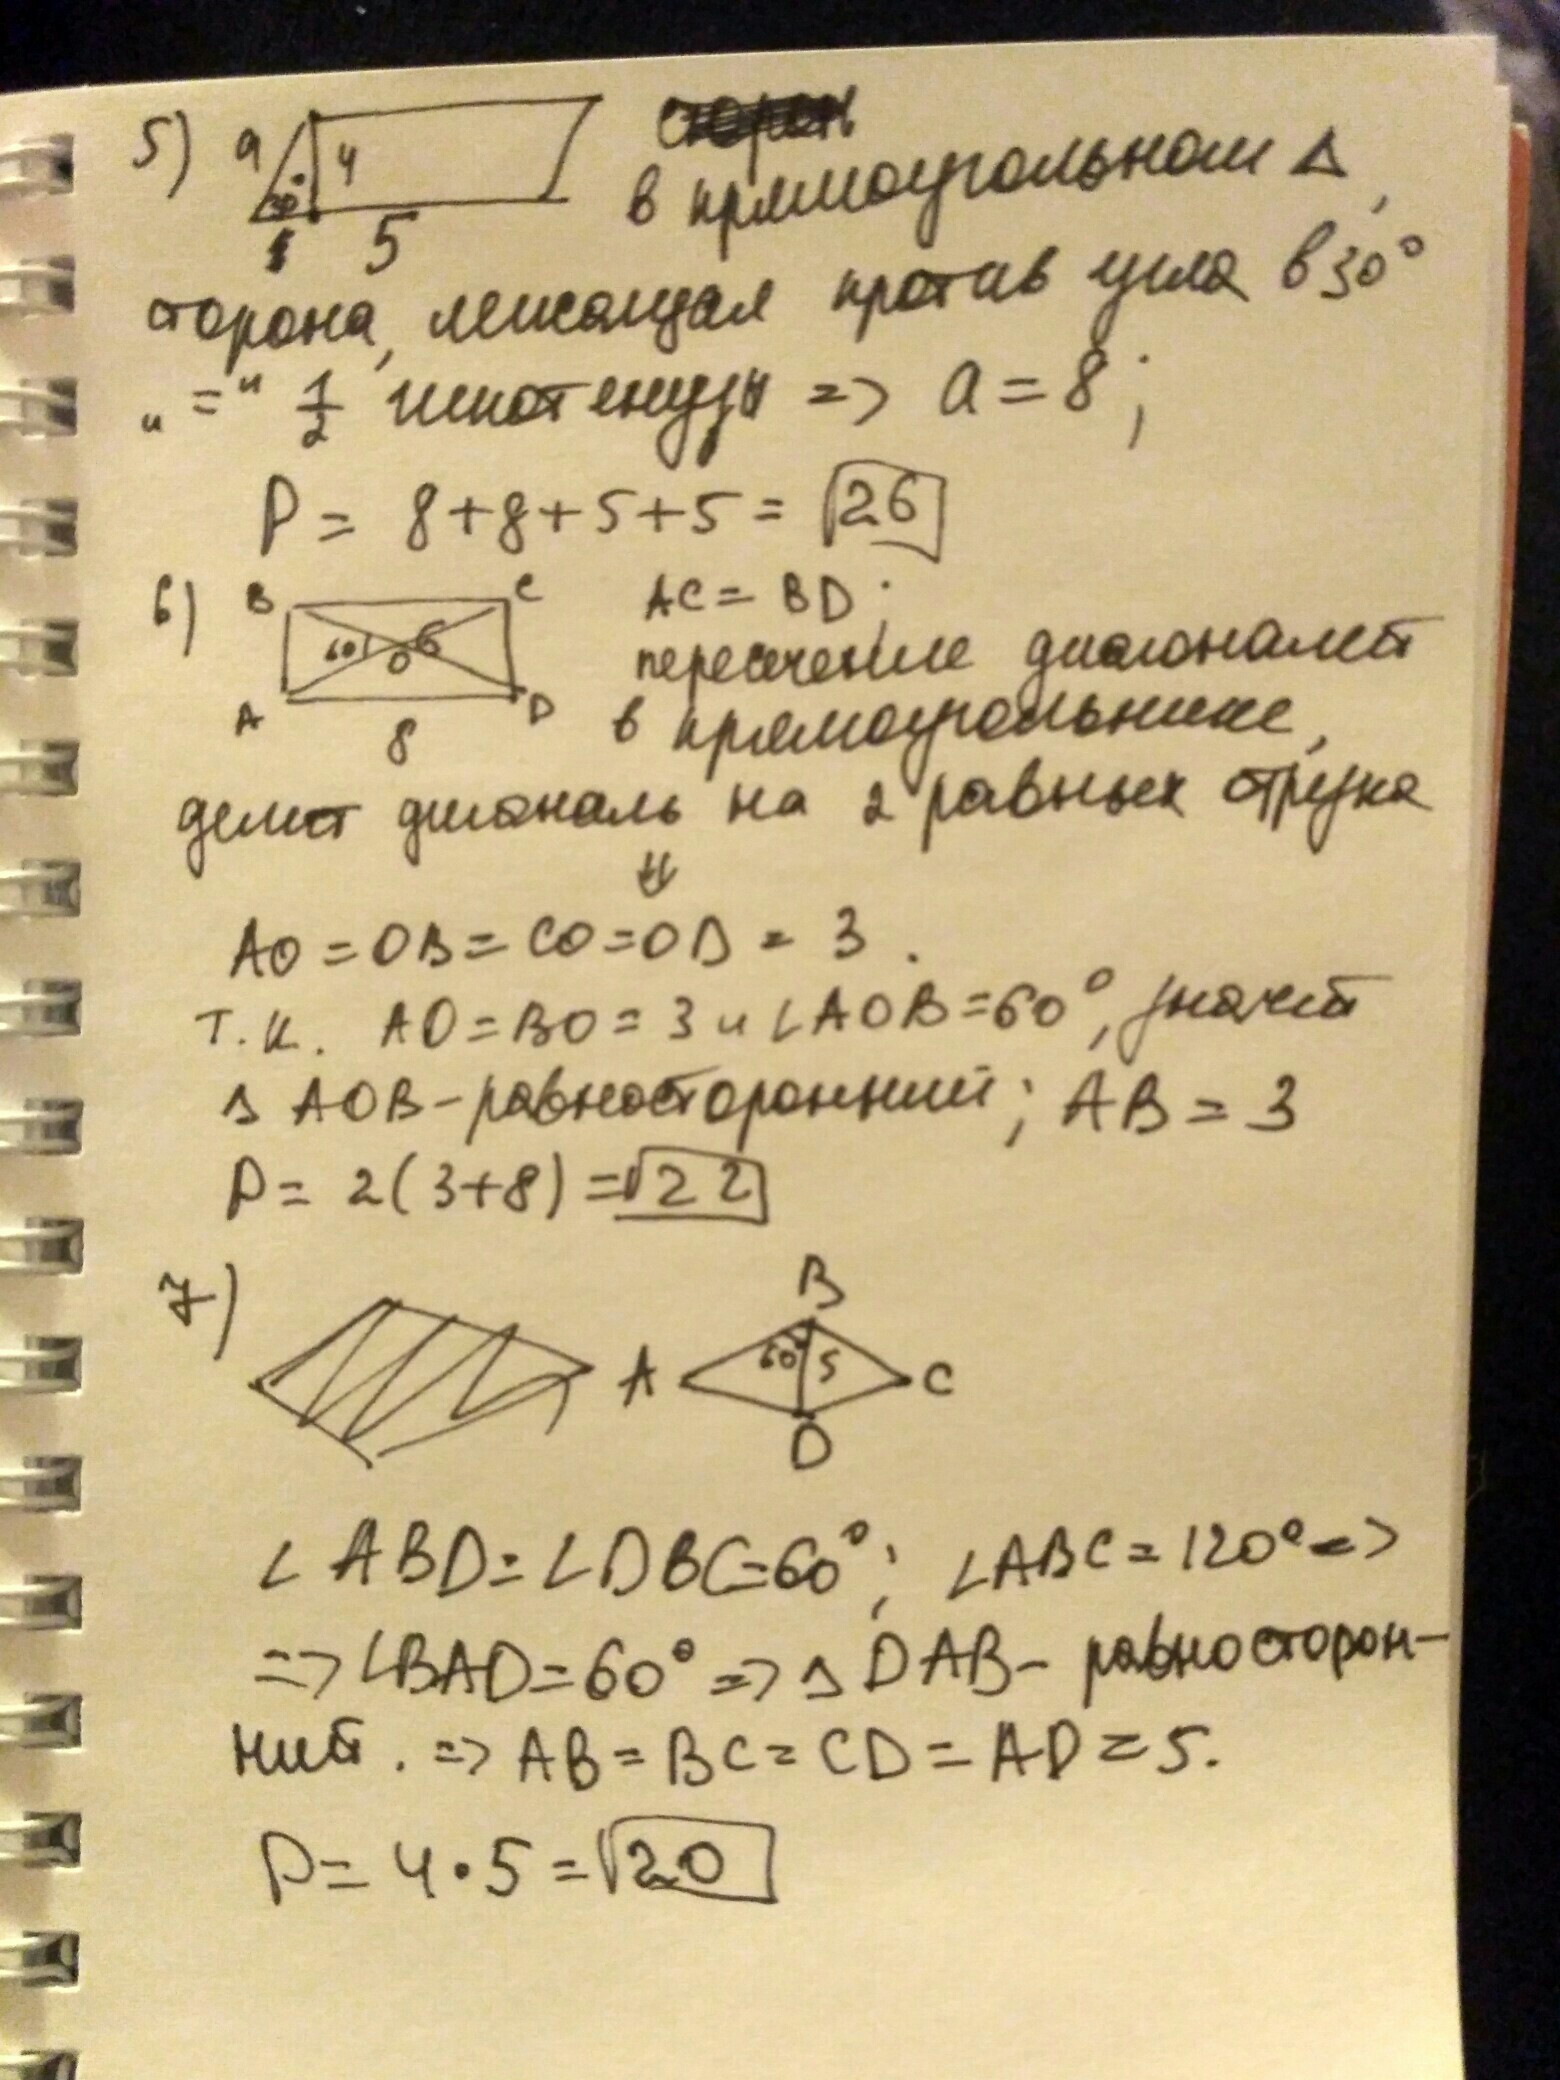 5) a 4 30° 5
в прямоугольном Δ,
сторона, лежащая против угла в 30°
„=“ 1/2 гипотенузы => a = 8;
P = 8+8+5+5 = 26
6) B C AC = BD;
60° 6 O пересечение диагоналей
A D 8 в прямоугольнике,
делит диагональ на 2 равных отрезка
⇓
AO = OB = CO = OD = 3.
т.к. AO = BO = 3 и ∠AOB = 60°, значит
Δ AOB - равносторонний; AB = 3
P = 2(3+8) = 22
7) B
A 60° 5 C
D
∠ABD = ∠DBC = 60°; ∠ABC = 120° =>
=> ∠BAD = 60° => Δ DAB - равносторон-
ний. => AB = BC = CD = AD = 5.
P = 4·5 = 20